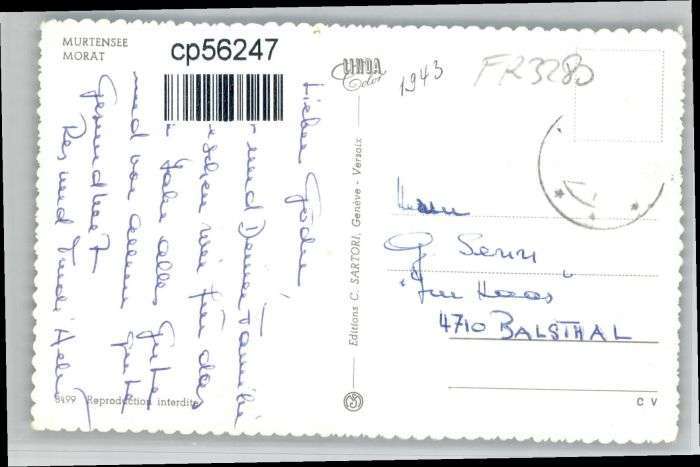 MURTENSEE
MORAT
cp56247
LINDA
Color
1943
FR3280
Lieber Godi,
und Deiner Familie
schen wir für das
Jahr alles Gute
und vor allem gute
Gesundheit
Res und Trudi
Editions C. SARTORI, Genève - Versoix
Herrn
G. Senn
"Im Haas"
4710 BALSTHAL
8499 Reproduction interdite
C V